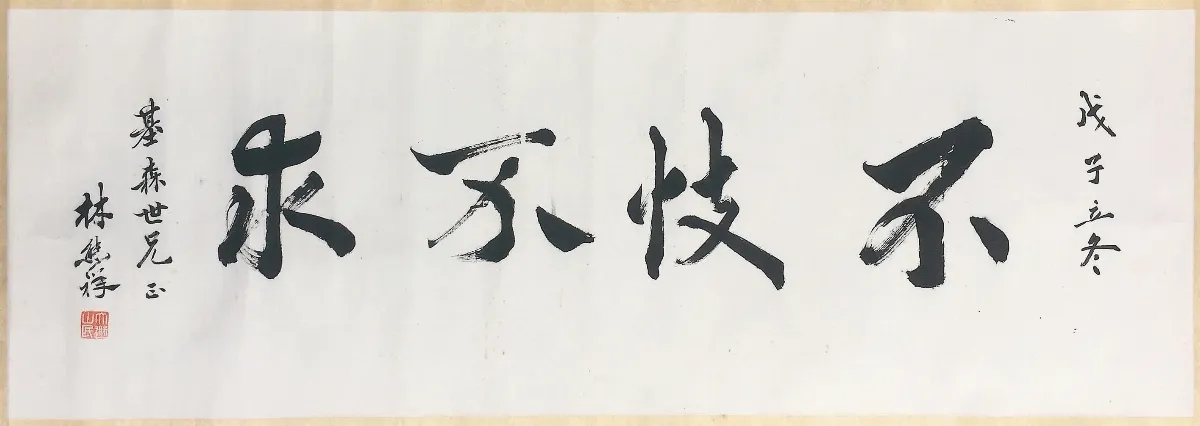 戊子立冬
不忮不求
基森世兄正
林熊祥